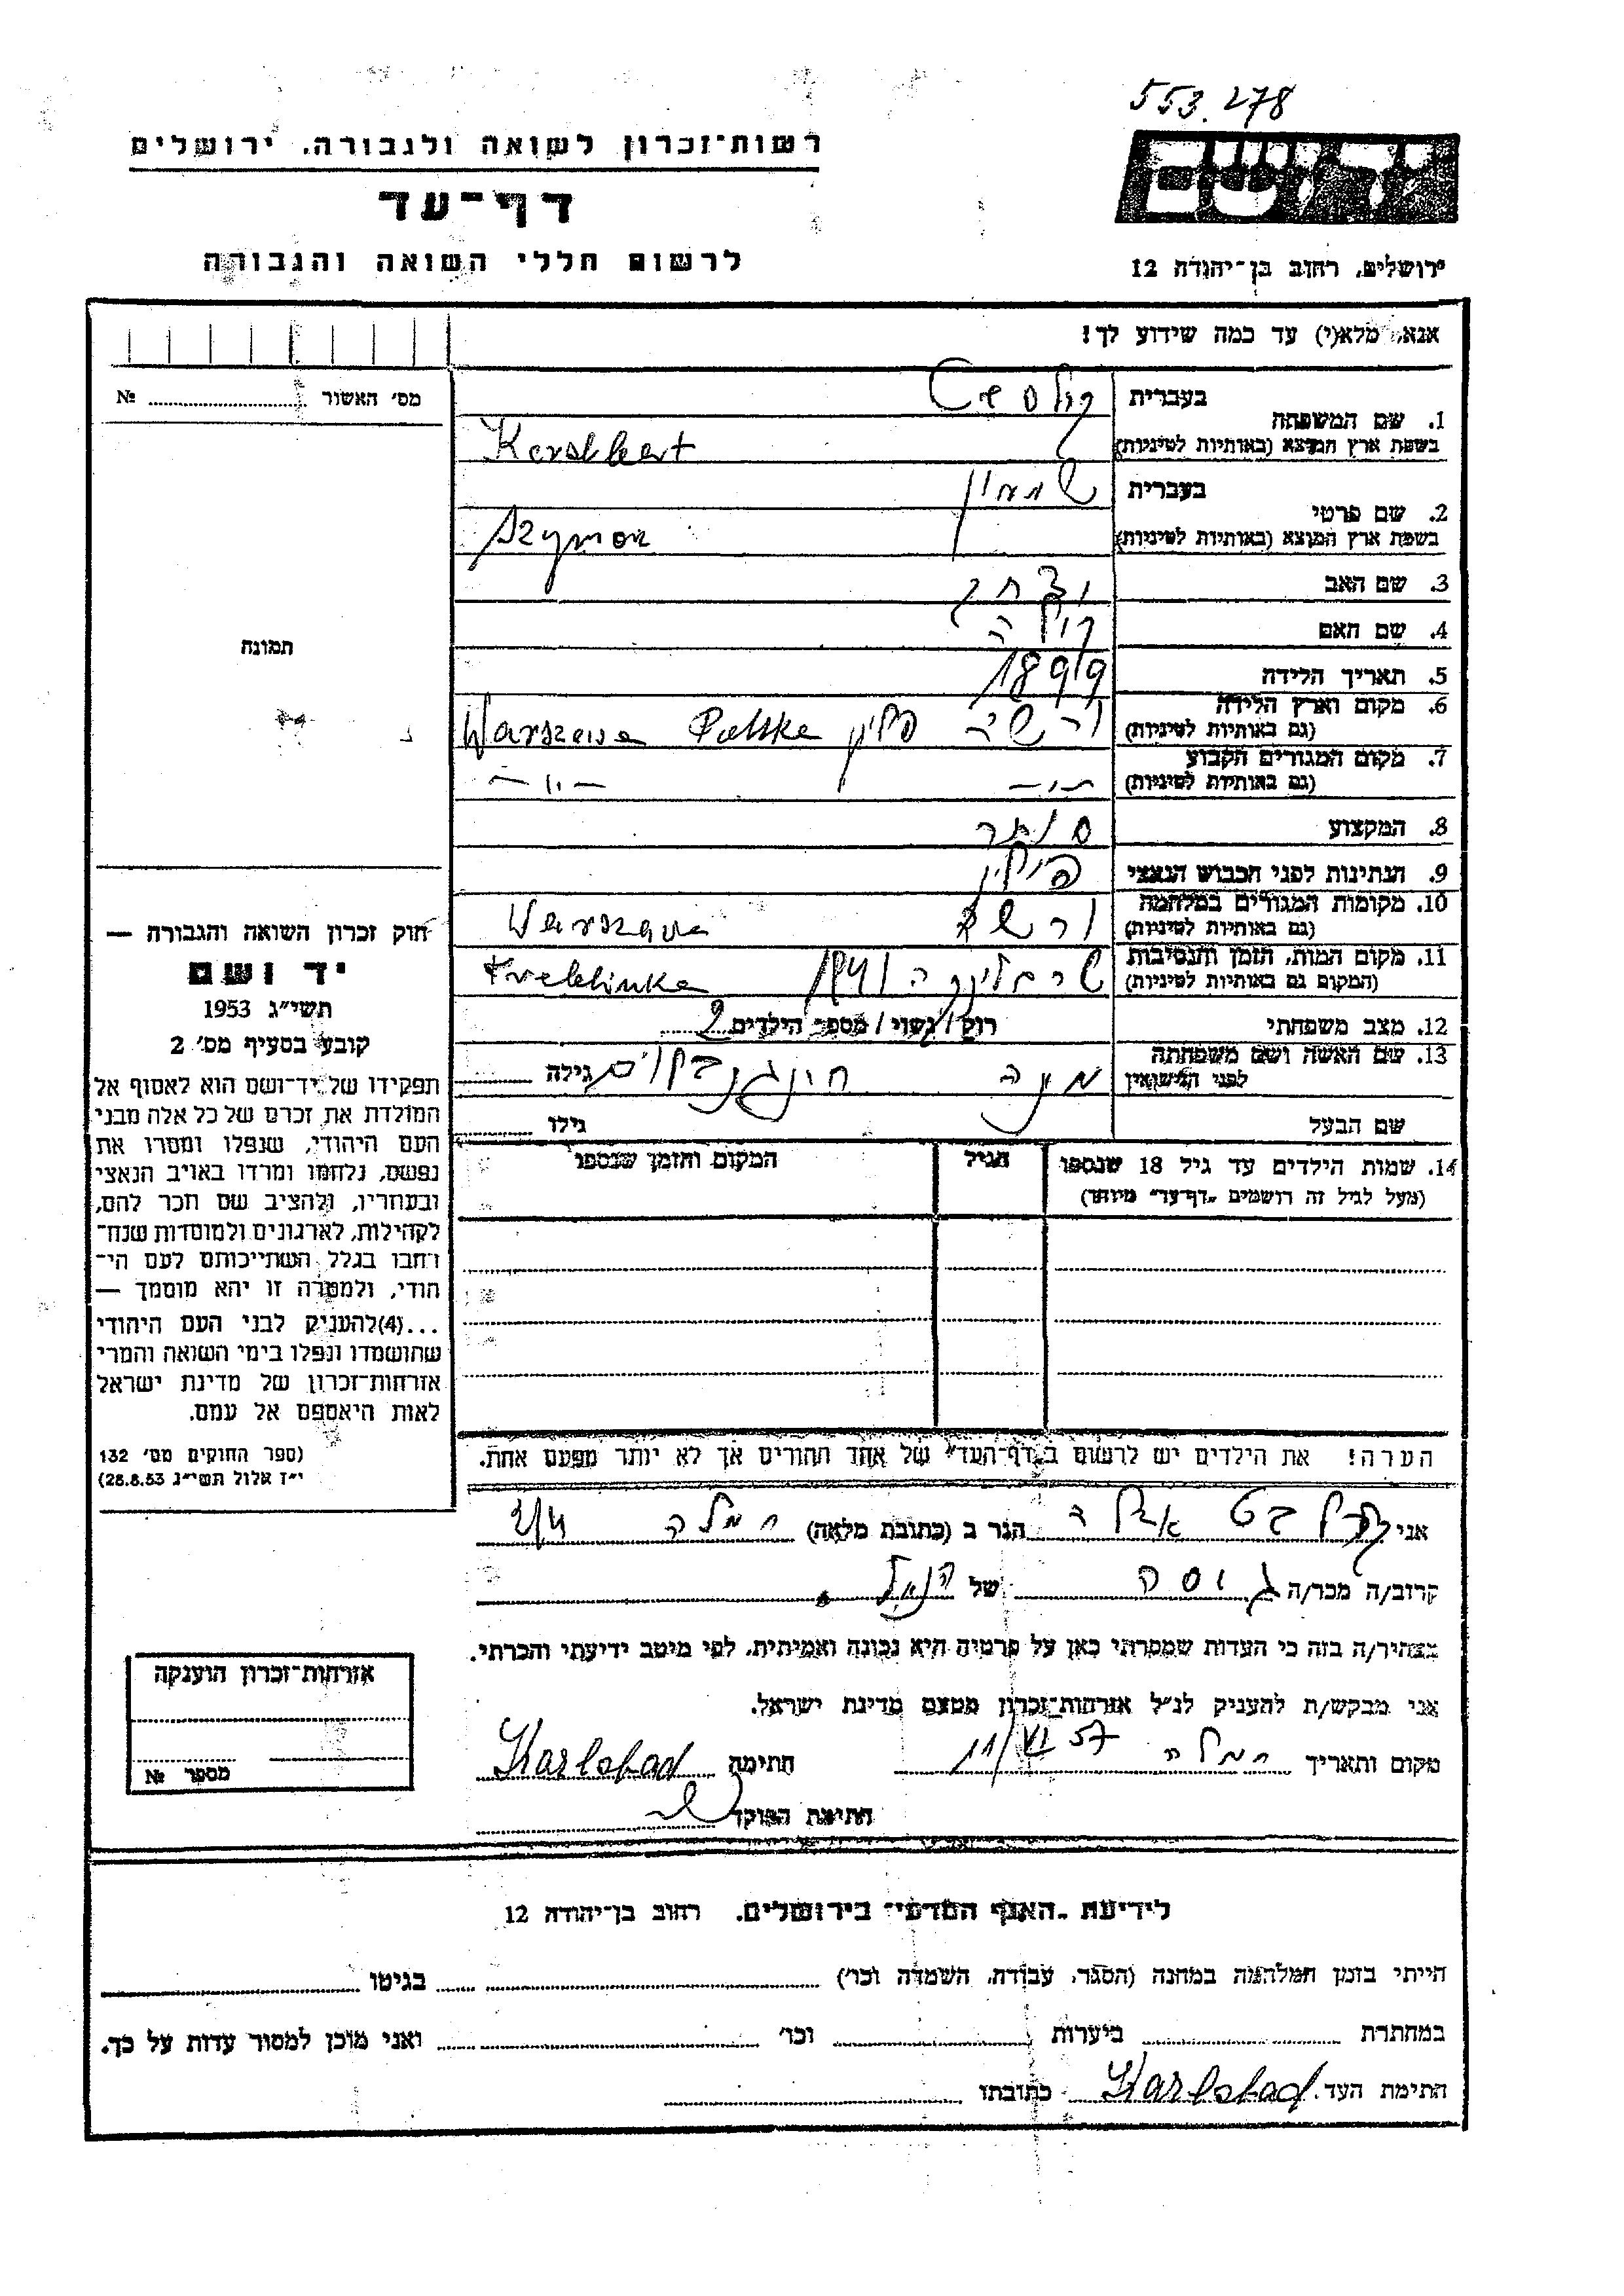 553.278
רשות־זכרון לשואה ולגבורה, ירושלים
יד ושם
דף־עד
לרשום חללי השואה והגבורה
ירושלים, רחוב בן־יהודה 12
אנא, מלא(י) עד כמה שידוע לך!
מס׳ האשור № 
1. שם המשפחה
בעברית
בשפת ארץ המוצא (באותיות לטיניות)
2. שם פרטי
בעברית שמעון
בשפת ארץ המוצא (באותיות לטיניות) Szymon
3. שם האב יצחק
4. שם האם
5. תאריך הלידה 1899
6. מקום וארץ הלידה
(גם באותיות לטיניות) פולין Polska Warszawa
7. מקום המגורים הקבוע
(גם באותיות לטיניות) — ״ — — ״ —
8. המקצוע סוחר
9. הנתינות לפני הכבוש הנאצי פולין
10. מקומות המגורים במלחמה
(גם באותיות לטיניות) Warszawa
11. מקום המות, הזמן והנסיבות
(המקום גם באותיות לטיניות) טרבלינקה 1941 Treblinka
12. מצב משפחתי רוק / נשוי / מספר הילדים 2
13. שם האשה ושם משפחתה
לפני הנישואין גילה
שם הבעל גילו
14. שמות הילדים עד גיל 18 שנספו
(מעל לגיל זה רושמים "דף־עד" מיוחד)
הגיל
המקום והזמן שנספו
הערה! את הילדים יש לרשום ב"דף־העד" של אחד ההורים אך לא יותר מפעם אחת.
תמונה
חוק זכרון השואה והגבורה —
יד ושם
תשי״ג 1953
קובע בסעיף מס׳ 2
תפקידו של יד־ושם הוא לאסוף אל
המולדת את זכרם של כל אלה מבני
העם היהודי, שנפלו ומסרו את
נפשם, נלחמו ומרדו באויב הנאצי
ובעוזריו, ולהציב שם וזכר להם,
לקהילות, לארגונים ולמוסדות שנח־
רבו בגלל השתייכותם לעם הי־
הודי, ולמטרה זו יהא מוסמך —
...(4) להעניק לבני העם היהודי
שהושמדו ונפלו בימי השואה והמרי
אזרחות־זכרון של מדינת ישראל
לאות היאספם אל עמם.
(ספר החוקים מס׳ 132
י״ז אלול תשי״ג 28.8.53)
אני הגר ב (כתובת מלאה) רמלה
קרוב/ה מכר/ה של
מצהיר/ה בזה כי העדות שמסרתי כאן על פרטיה היא נכונה ואמיתית, לפי מיטב ידיעתי והכרתי.
אני מבקש/ת להעניק לנ״ל אזרחות־זכרון מטעם מדינת ישראל.
מקום ותאריך רמלה 11/VI 57 חתימה Karlsbad
חתימת הפוקד
אזרחות־זכרון הוענקה
מספר №
לידיעת "האגף המדעי" בירושלים, רחוב בן־יהודה 12
הייתי בזמן המלחמה במחנה (הסגר, עבודה, השמדה וכו׳) בגיטו
במחתרת ביערות וכו׳ ואני מוכן למסור עדות על כך.
חתימת העד Karlsbad כתובתו